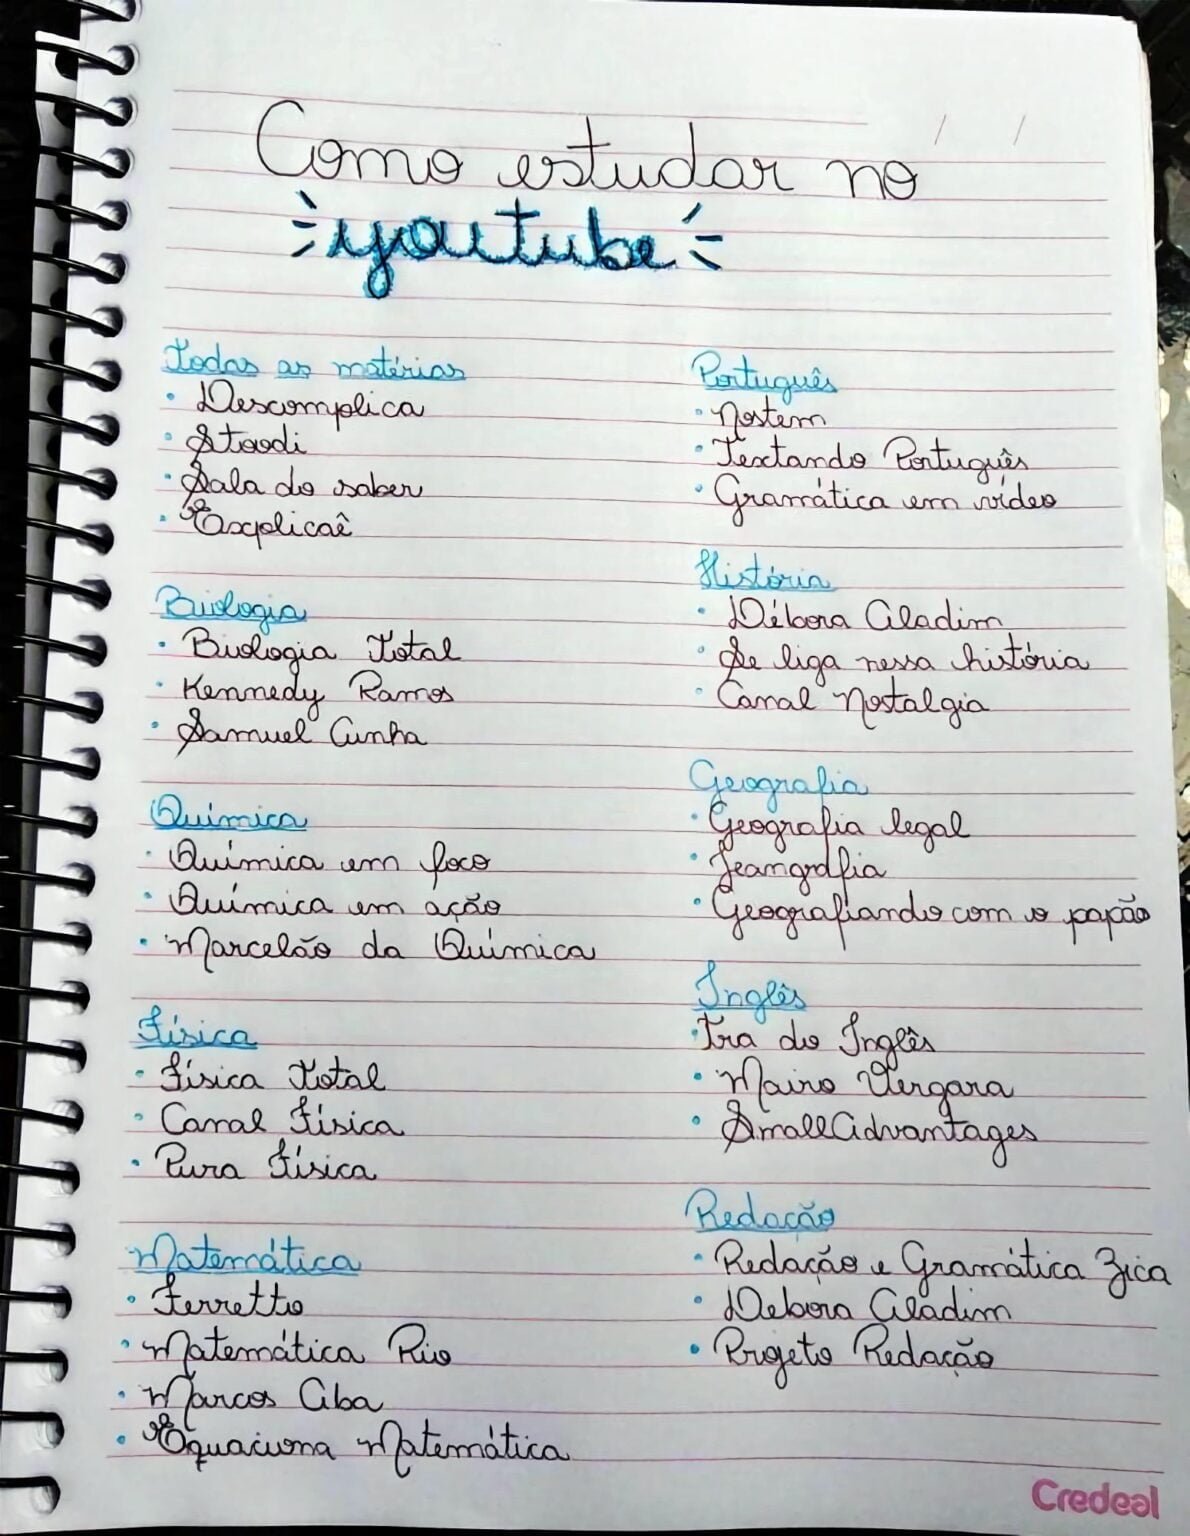 Como estudar no
youtube
Todas as matérias
• Descomplica
• Stoodi
• Sala do saber
• Explicaê
Biologia
• Biologia Total
• Kennedy Ramos
• Samuel Cunha
Química
• Química em foco
• Química em ação
• Marcelão da Química
Física
• Física Total
• Canal Física
• Pura Física
Matemática
• Ferretto
• Matemática Rio
• Marcos Aba
• Equaciona Matemática
Português
• Nostem
• Textando Português
• Gramática em vídeo
História
• Débora Aladim
• Se liga nessa história
• Canal Nostalgia
Geografia
• Geografia legal
• Jeangrafia
• Geografiando com o papão
Inglês
• Tra do Inglês
• Mairo Vergara
• SmallAdvantages
Redação
• Redação e Gramática Zica
• Debora Aladim
• Projeto Redação
Credeal